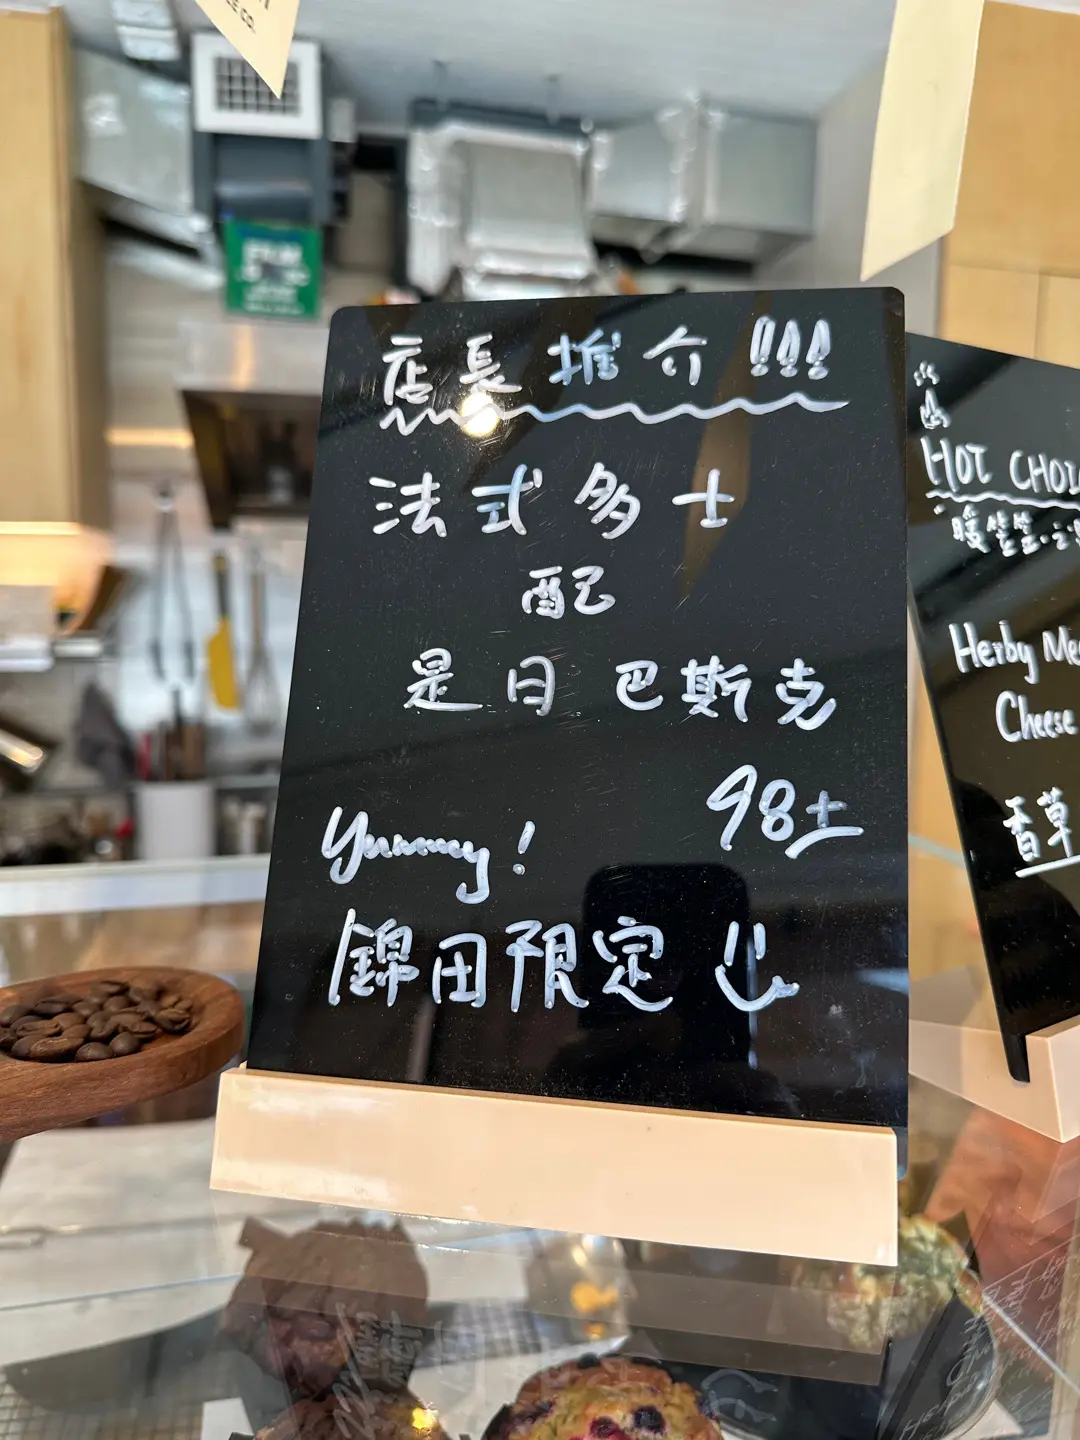 店長推介!!!
法式多士
配
是日巴斯克
98±
Yummy!
錦田限定
HOT CHOC
暖笠笠
Herby
Cheese
香草